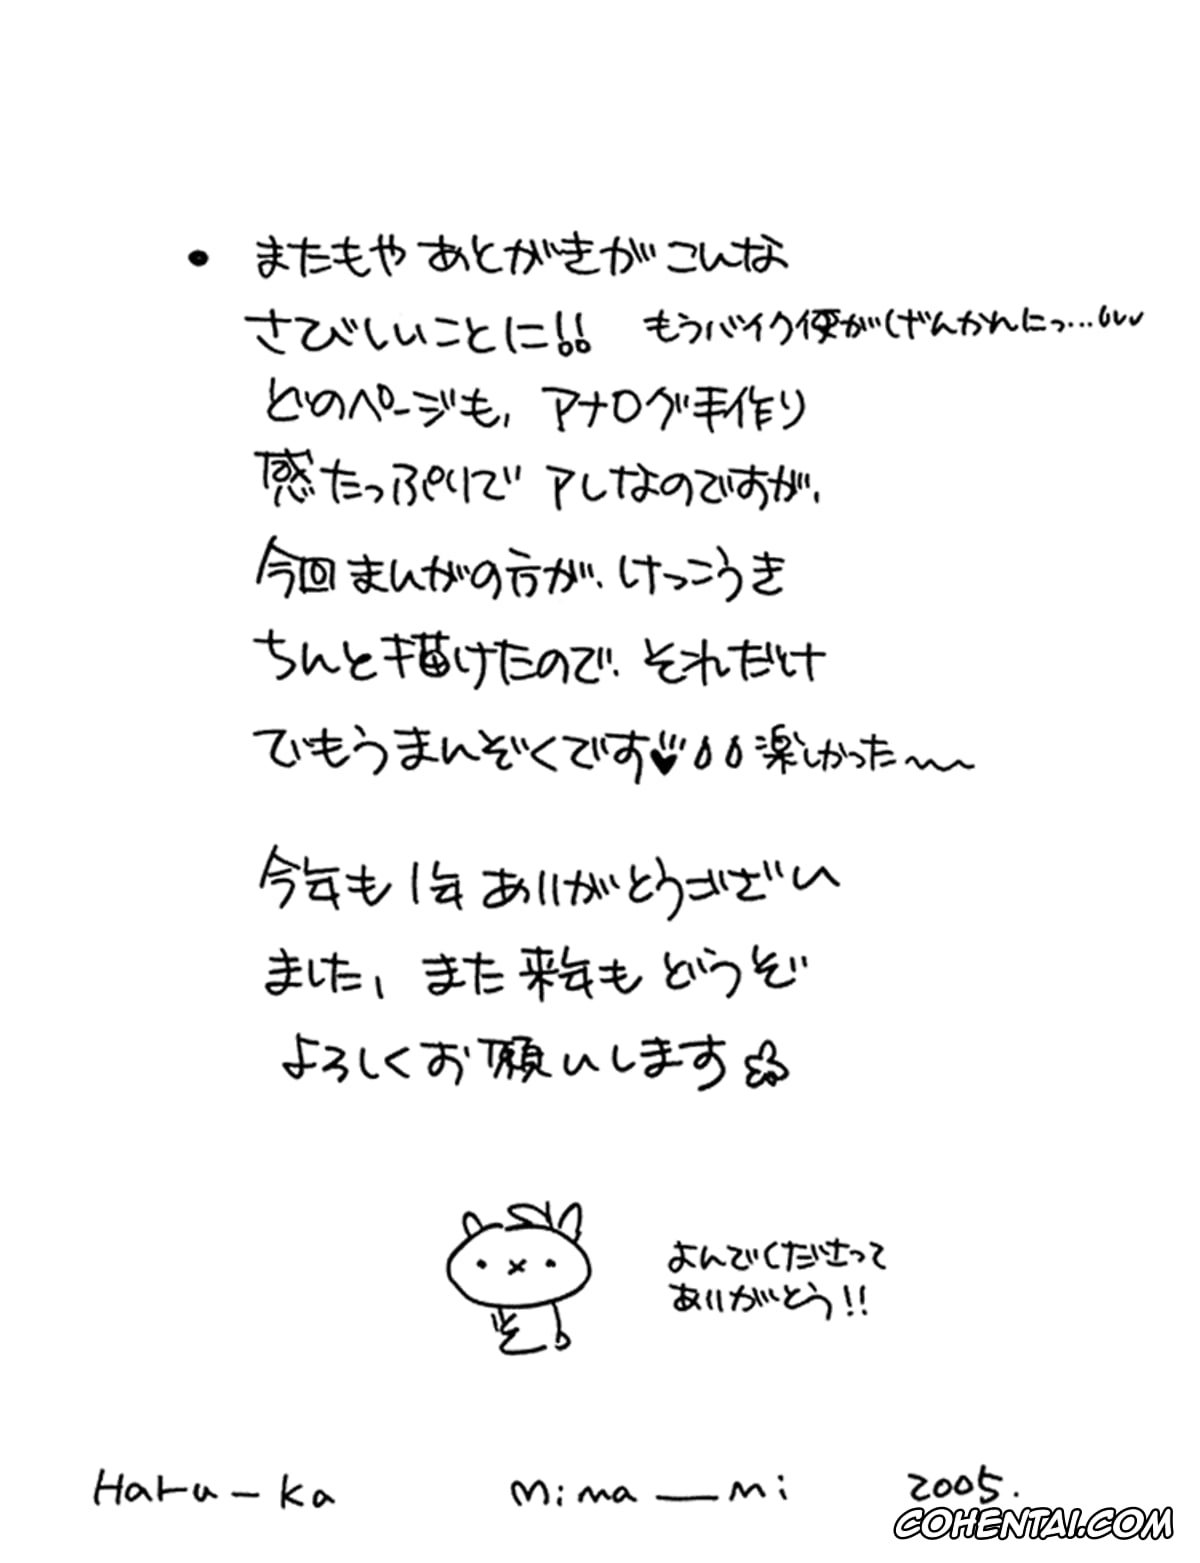 • またもや あとがきが こんな
さびしいことに!! もうバイク便がくげんかんにっ…
どのページも, アナログ手作り
感たっぷりで アレなのですが,
今回 まんがの方が、けっこうき
ちんと描けたので、それだけ
でもうまんぞくです♥ 楽しかった〜〜
今年も 1年 ありがとうござい
ました, また 来年も どうぞ
よろしくお願いします
よんでくださって
ありがとう!!
Haru – ka Mina — mi 2005.
COHENTAI.COM